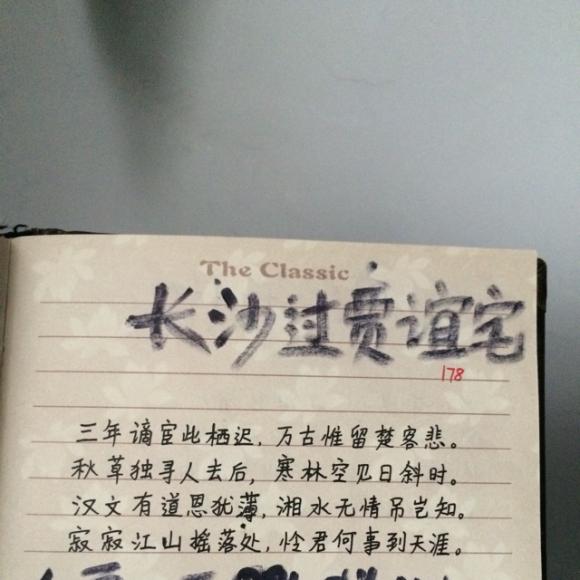 The Classic
长沙过贾谊宅
178
三年谪宦此栖迟，万古惟留楚客悲。
秋草独寻人去后，寒林空见日斜时。
汉文有道恩犹薄，湘水无情吊岂知。
寂寂江山摇落处，怜君何事到天涯。